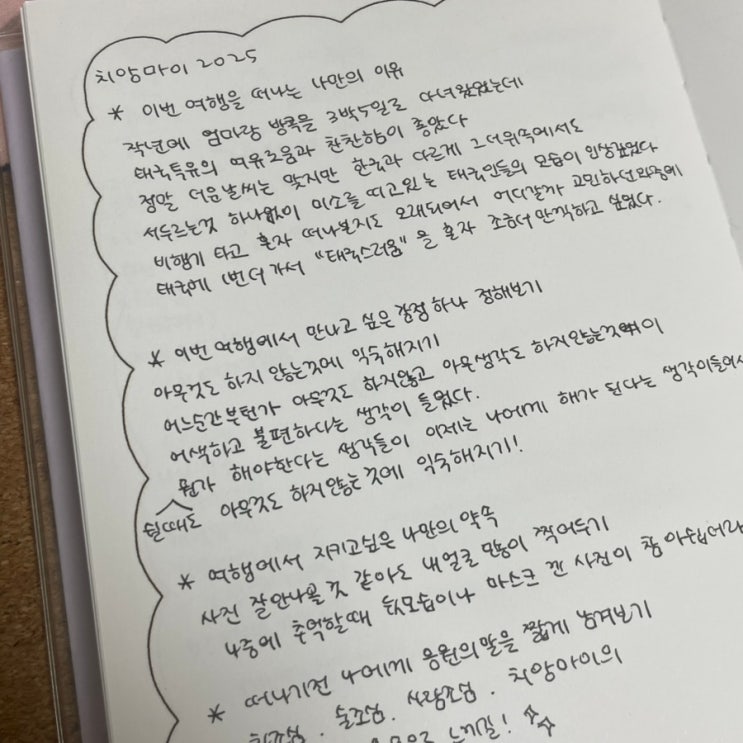 치앙마이 2025
* 이번 여행을 떠나는 나만의 이유
작년에 엄마랑 방콕을 3박5일로 다녀왔었는데
태국특유의 여유로움과 찬찬함이 좋았다
정말 더운날씨는 맞지만 한국과 다르게 그 더위속에서도
서두르는것 하나없이 미소를 띠고있는 태국인들의 모습이 인상깊었다
비행기 타고 혼자 떠나본지도 오래되어서 어디갈까 고민하던와중에
태국에 1번 더 가서 "태국스러움"을 혼자 조금더 만끽하고 싶었다.
* 이번 여행에서 만나고 싶은 감정 하나 정해보기
아무것도 하지 않는것에 익숙해지기
어느순간부턴가 아무것도 하지않고 아무생각도 하지않는것이
어색하고 불편하다는 생각이 들었다.
뭔가 해야한다는 생각들이 이제는 나에게 해가 된다는 생각이들어서
쉴때도 아무것도 하지않는것에 익숙해지기!
* 여행에서 지키고싶은 나만의 약속
사진 잘안나올것 같아도 내얼굴 많이 찍어두기
나중에 추억할때 뒷모습이나 마스크 낀 사진이 참 아쉽더라
* 떠나기전 나에게 응원의말을 짧게 남겨보기
술조심. 사람조심. 치앙마이의
느끼길! ☆☆